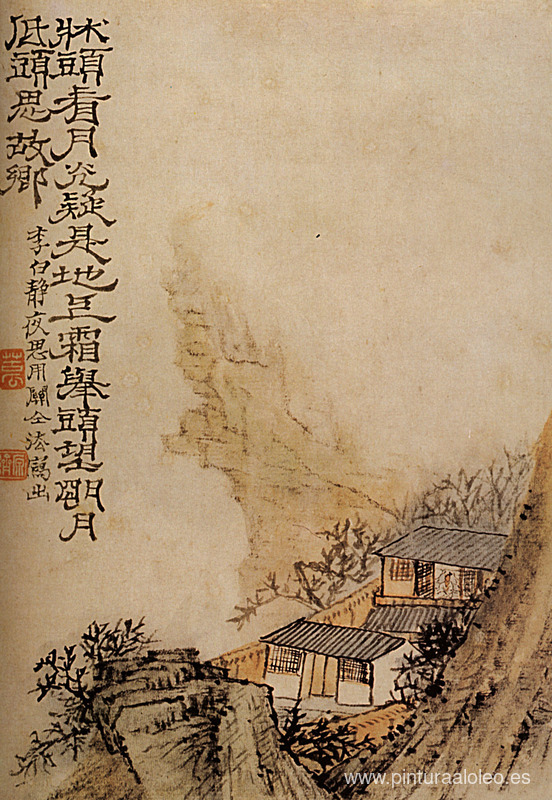 牀頭看月光疑是地上霜舉頭望朙月
低頭思故鄉
李白靜夜思用關仝法寫出
www.pinturaaloleo.es